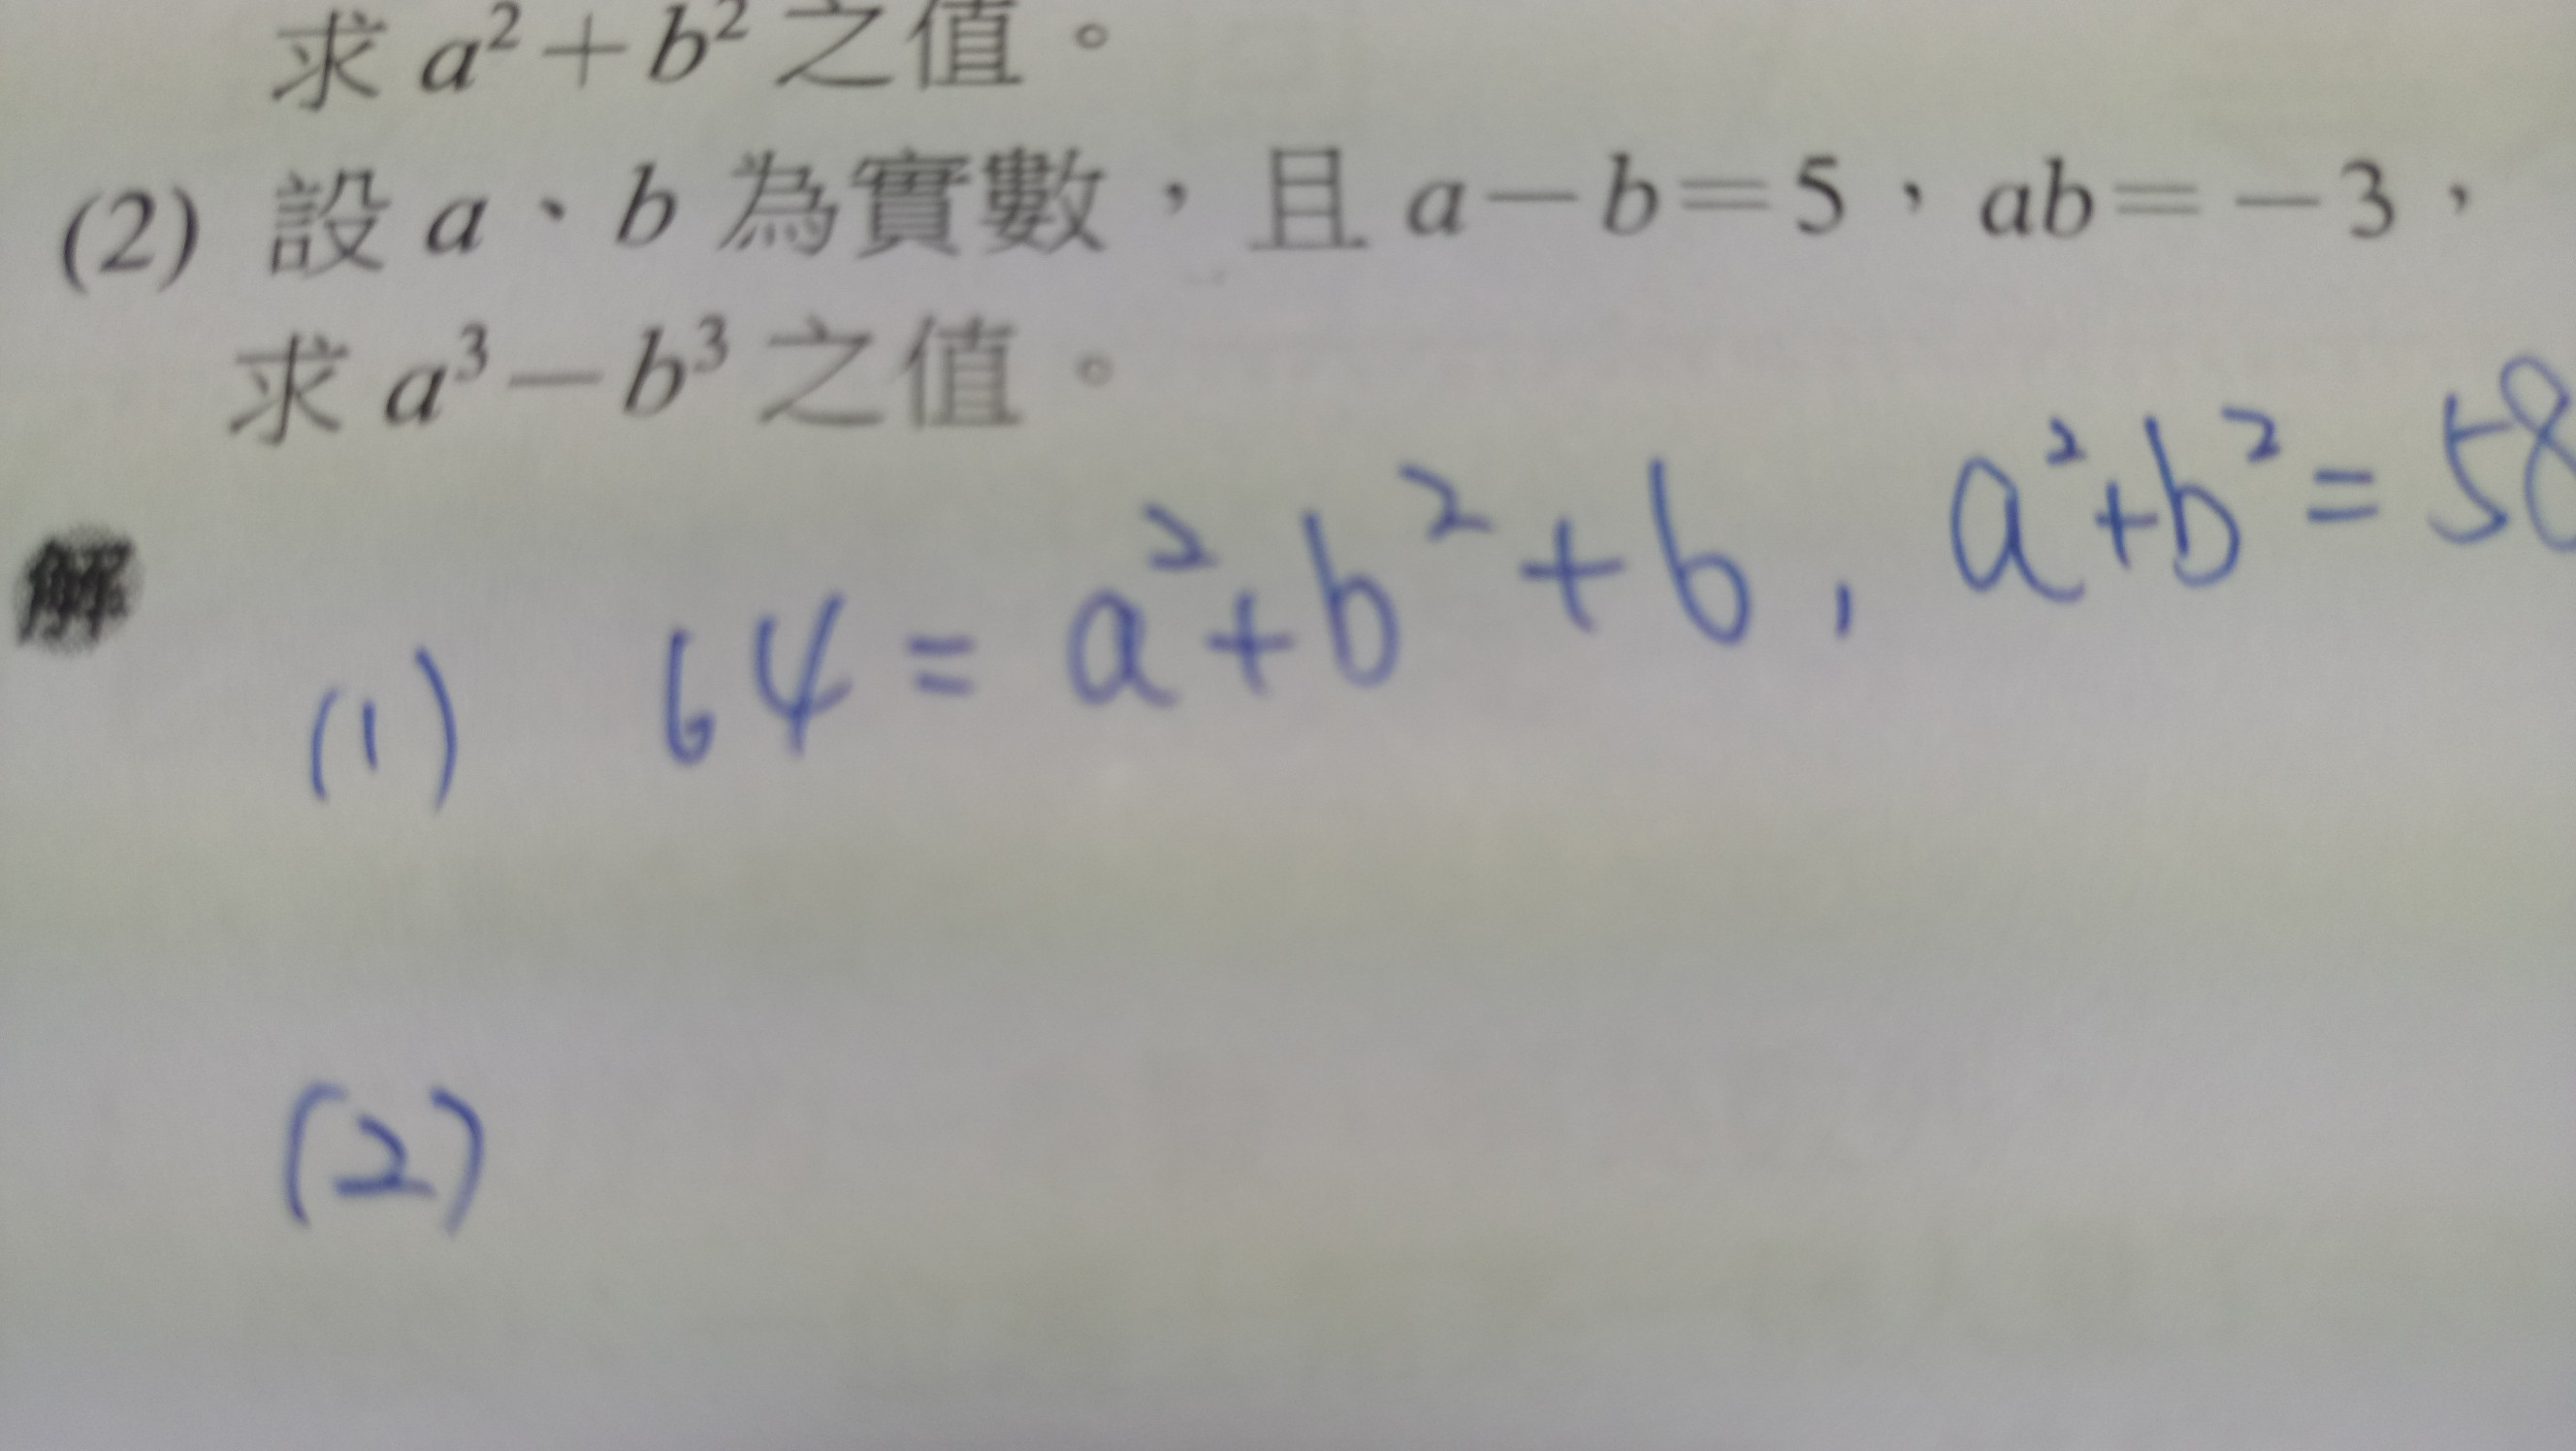 求 a²+b² 之值。
(2) 設 a、b 為實數，且 a－b＝5，ab＝－3，
求 a³－b³ 之值。
解
(1) 64 = a²+b²+6, a²+b² = 58
(2)